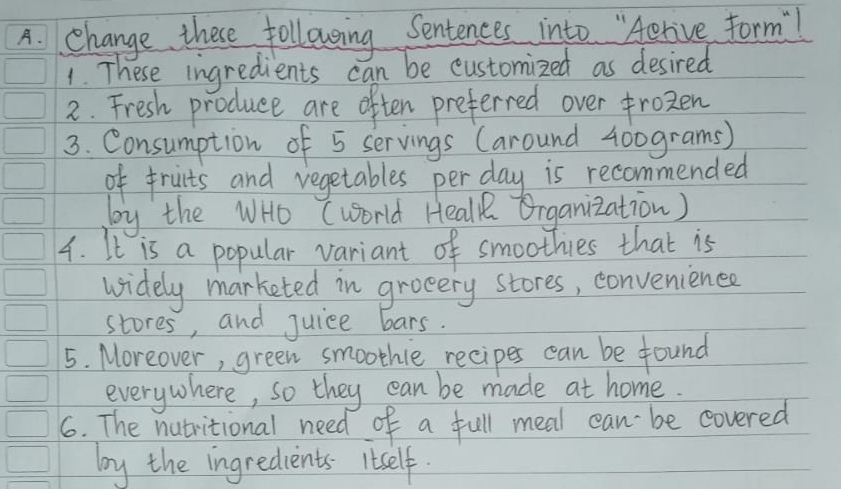 A. Change these following Sentences into "Active Form"!
1. These ingredients can be customized as desired
2. Fresh produce are often preferred over frozen
3. Consumption of 5 servings (around 400grams)
of fruits and vegetables per day is recommended
by the WHO (World Health Organization)
4. It is a popular variant of smoothies that is
widely marketed in grocery stores, convenience
stores, and juice bars.
5. Moreover, green smoothie recipes can be found
everywhere, so they can be made at home.
6. The nutritional need of a full meal can be covered
by the ingredients itself.